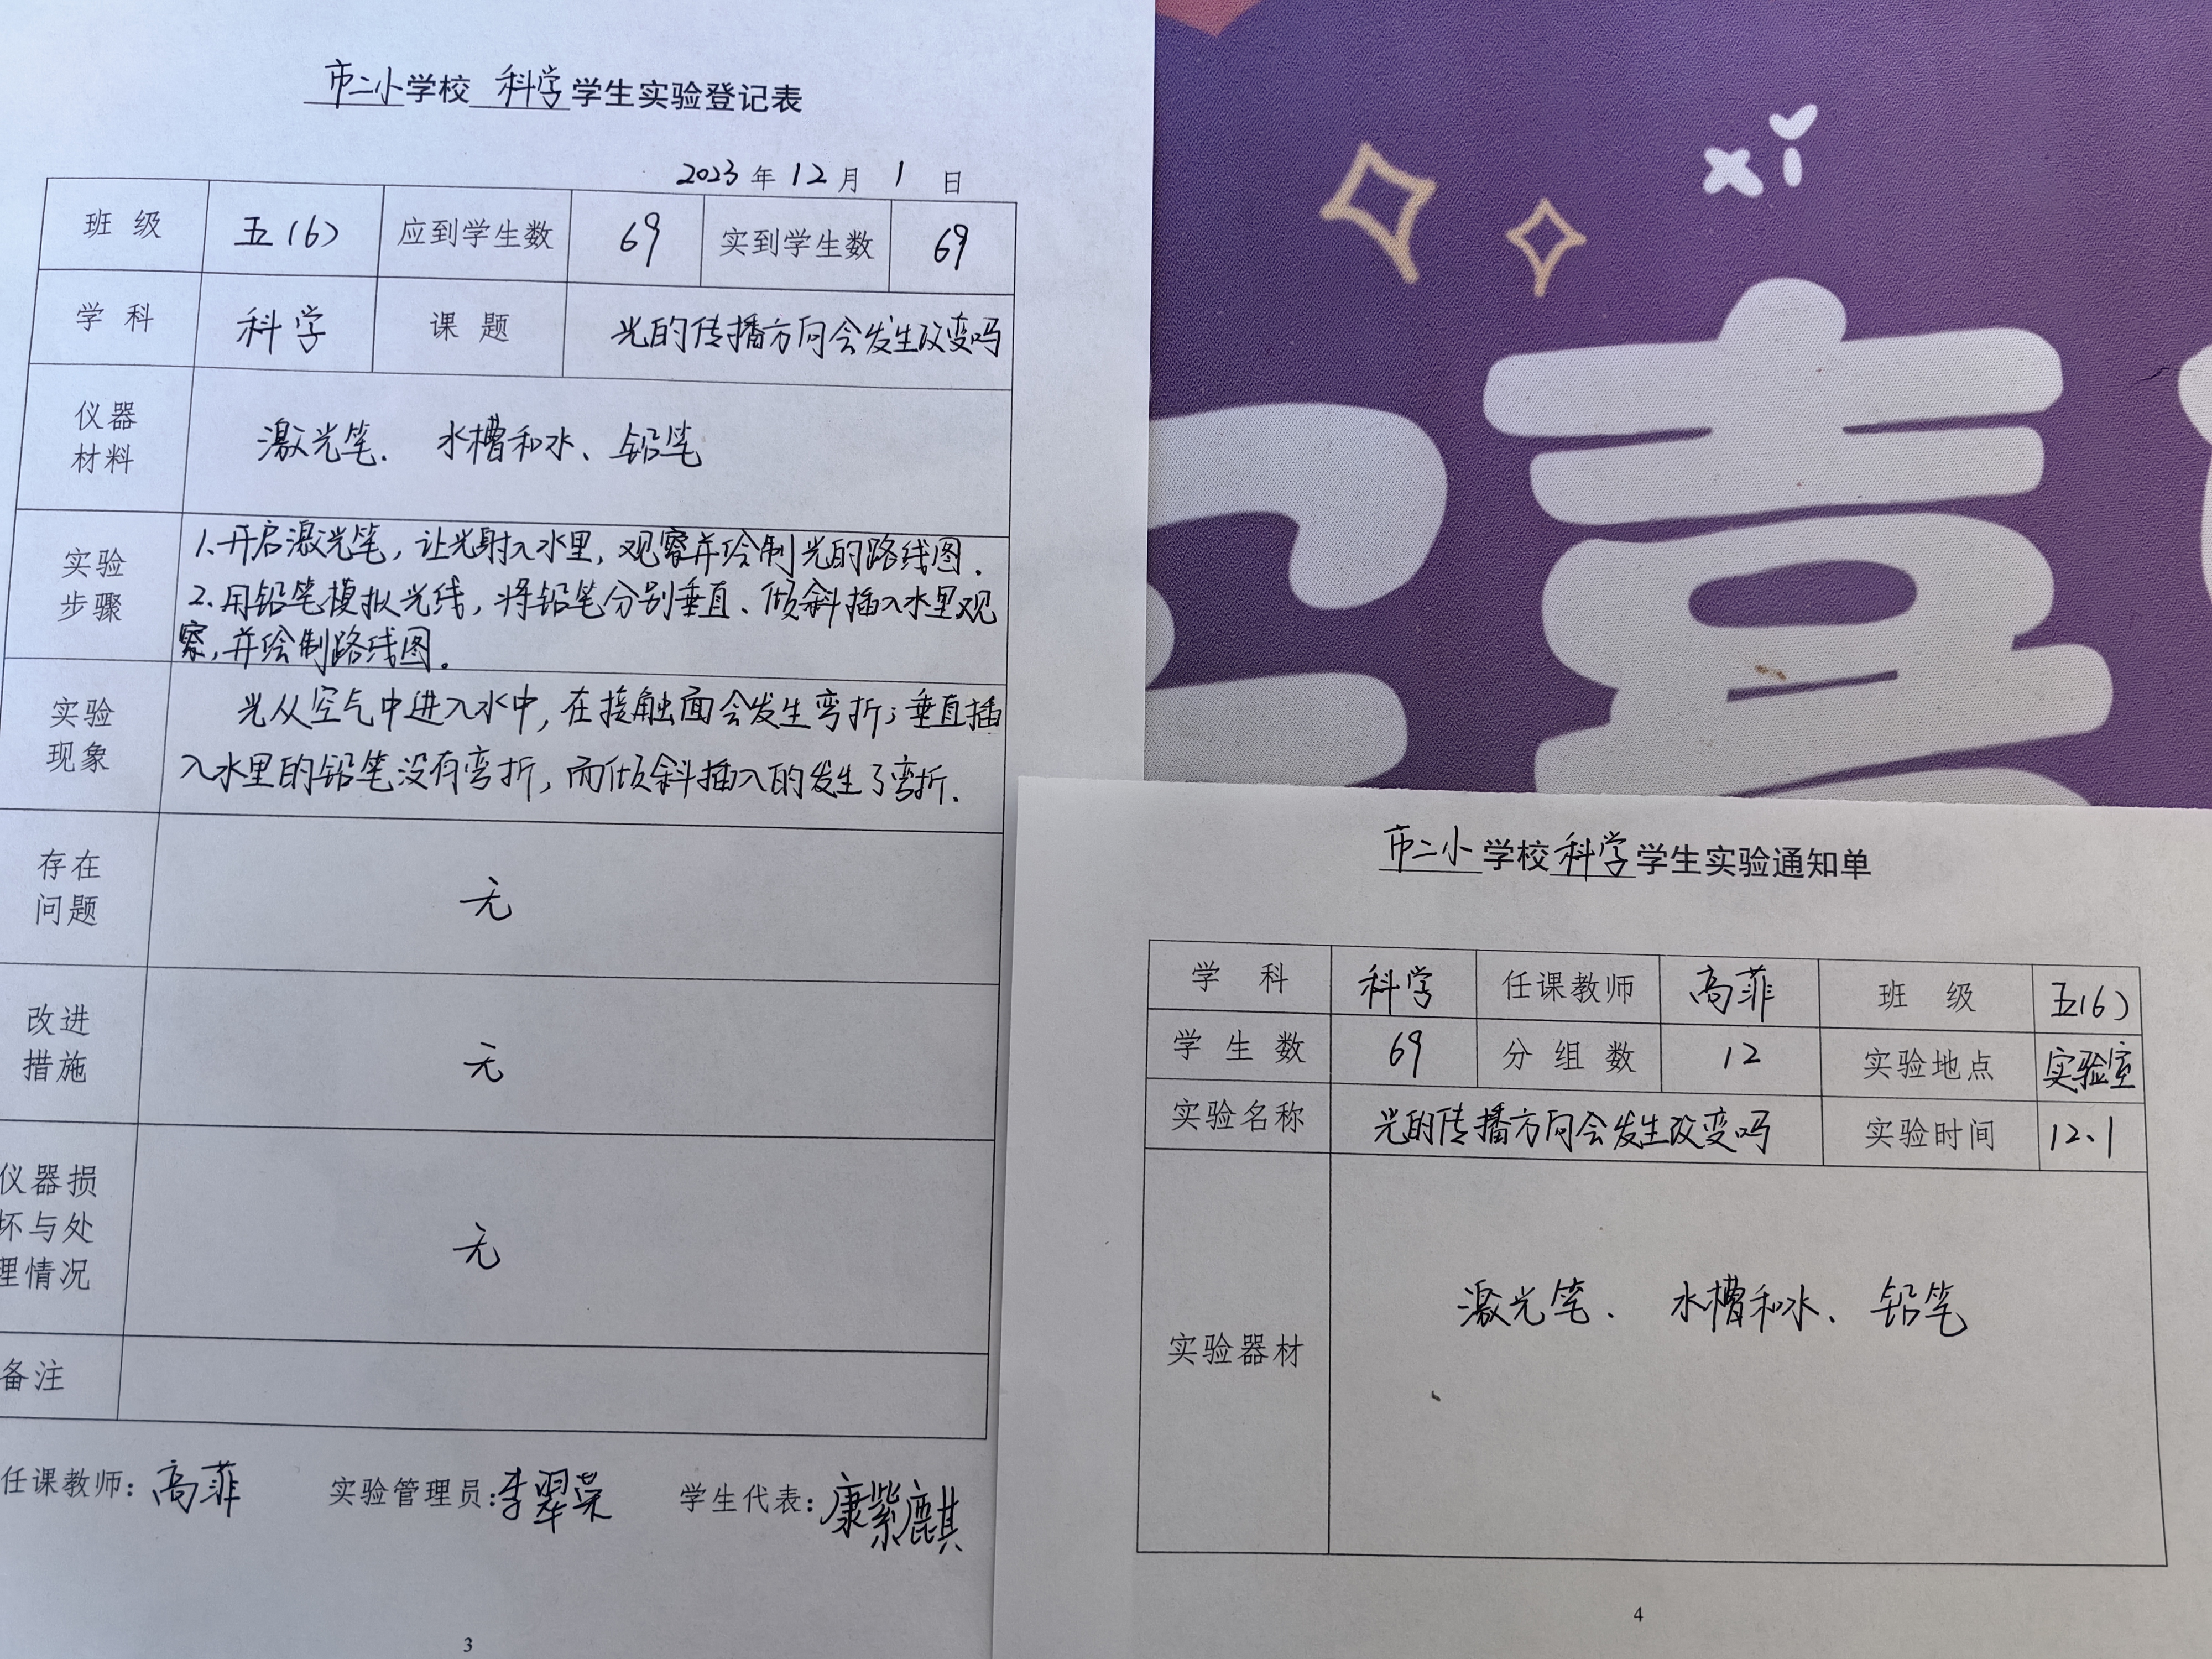 市二小学校 科学 学生实验登记表
2023 年 12 月 1 日
班 级 五(6) 应到学生数 69 实到学生数 69
学 科 科学 课 题 光的传播方向会发生改变吗
仪器
材料
激光笔、 水槽和水、铅笔
实验
步骤
1.开启激光笔，让光射入水里，观察并绘制光的路线图.
2.用铅笔模拟光线，将铅笔分别垂直、倾斜插入水里观
察,并绘制路线图。
实验
现象
光从空气中进入水中,在接触面会发生弯折;垂直插
入水里的铅笔没有弯折,而倾斜插入的发生了弯折.
存在
问题
无
改进
措施
无
仪器损
坏与处
理情况
无
备注
任课教师：高菲 实验管理员：李翠荣 学生代表：康紫麒
3
xī
喜
市二小学校 科学 学生实验通知单
学 科 科学 任课教师 高菲 班 级 五(6)
学 生 数 69 分 组 数 12 实验地点 实验室
实验名称 光的传播方向会发生改变吗 实验时间 12.1
实验器材
激光笔、 水槽和水、铅笔
4